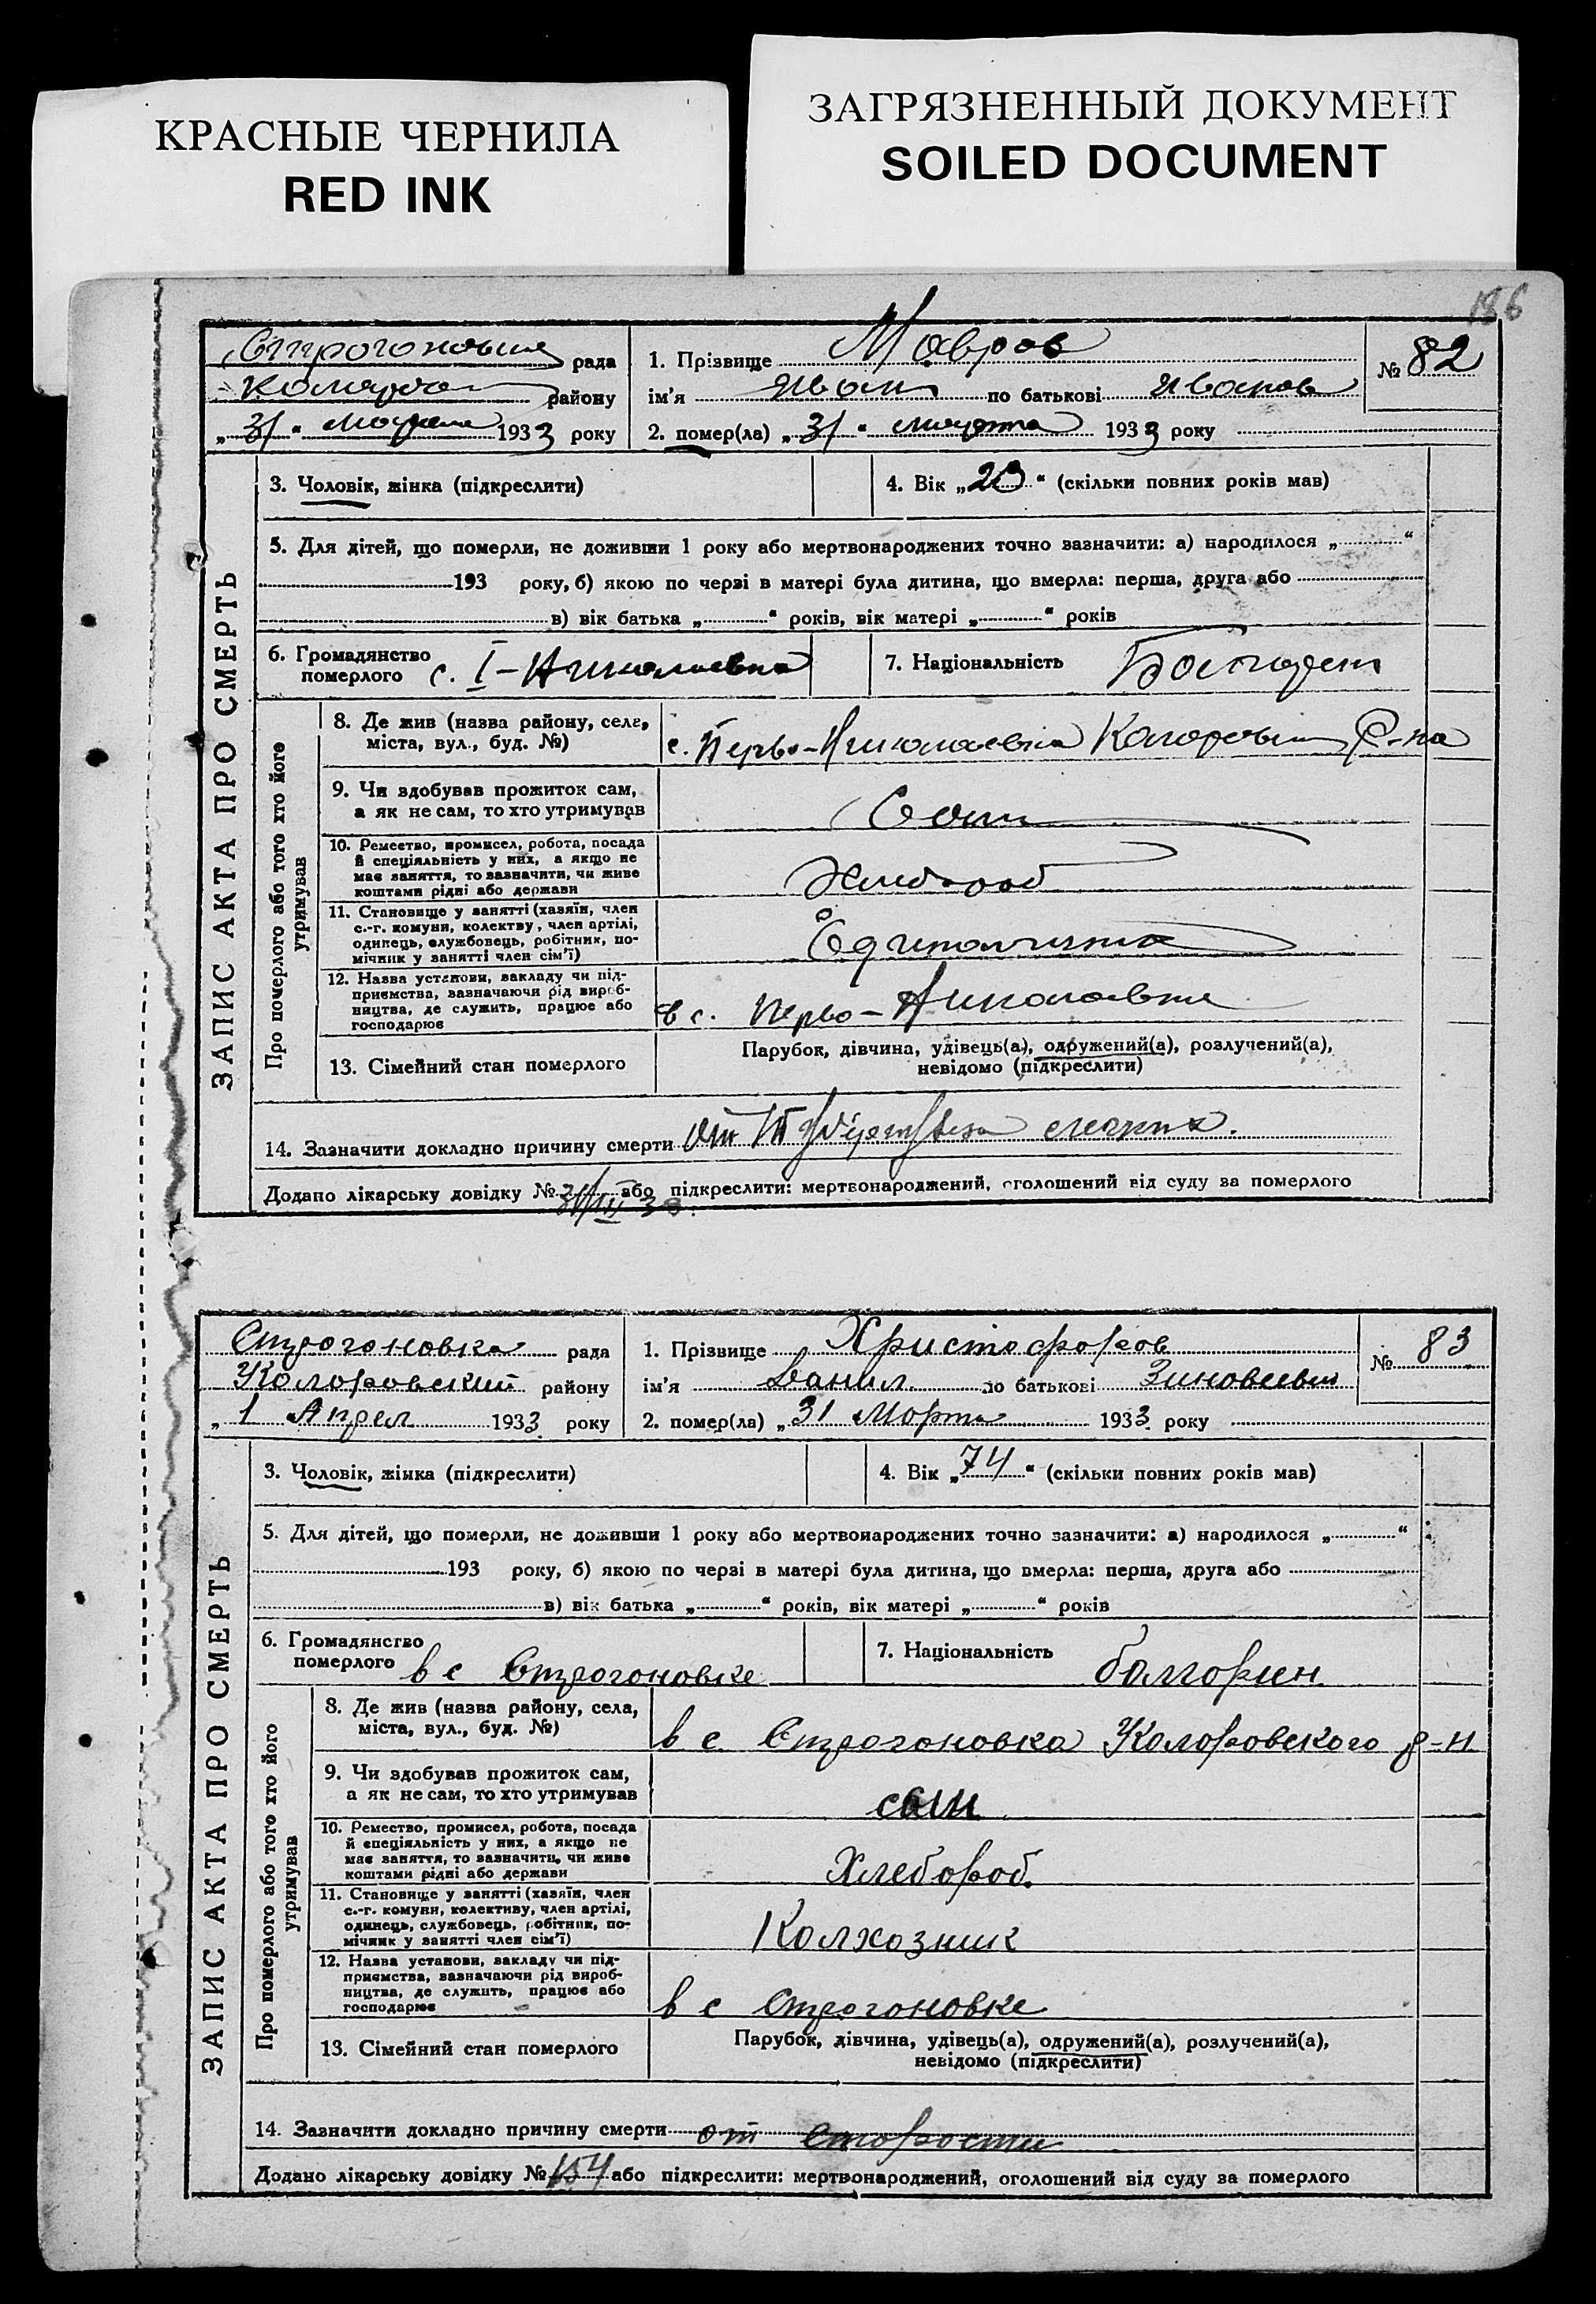 КРАСНЫЕ ЧЕРНИЛА
RED INK
ЗАГРЯЗНЕННЫЙ ДОКУМЕНТ
SOILED DOCUMENT
186
рада
району
„ 31 “ 1933 року
1. Прізвище Мавров
ім'я Иван по батькові Иванов
2. помер(ла) „ 31 “ марта 1933 року
№ 82
ЗАПИС АКТА ПРО СМЕРТЬ
3. Чоловік, жінка (підкреслити)
4. Вік „ “ (скільки повних років мав)
5. Для дітей, що померли, не доживши 1 року або мертвонароджених точно зазначити: а) народилося „ “
193 року, б) якою по черзі в матері була дитина, що вмерла: перша, друга або
в) вік батька „ “ років, вік матері „ “ років
6. Громадянство
померлого с. I-Николаевка
7. Національність
Про померлого або того хто його
утримував
8. Де жив (назва району, села,
міста, вул., буд. №)
с. Перво-Николаевка Р-на
9. Чи здобував прожиток сам,
а як не сам, то хто утримував
Сам
10. Ремество, промисел, робота, посада
й спеціяльність у них, а якщо не
має заняття, то зазначити, чи живе
коштами рідні або держави
Хлебороб
11. Становище у занятті (хазяїн, член
с.-г. комуни, колектву, член артілі,
одинець, службовець, робітник, по-
мічник у занятті член сім'ї)
12. Назва установи, закладу чи під-
приємства, зазначаючи рід вироб-
ництва, де служить, працює або
господарює
в с. Перво-Николаевке
13. Сімейний стан померлого
Парубок, дівчина, удівець(а), одружений(а), розлучений(а),
невідомо (підкреслити)
14. Зазначити докладно причину смерти от
Додано лікарську довідку № 31/III 33 або підкреслити: мертвонароджений, оголошений від суду за померлого
Строгоновка рада
Коларовский району
„ 1 Апрел 1933 року
1. Прізвище Христофоров
ім'я Данил по батькові Зиновеевич
2. помер(ла) „ 31 Марта 1933 року
№ 83
ЗАПИС АКТА ПРО СМЕРТЬ
3. Чоловік, жінка (підкреслити)
4. Вік „ 74 “ (скільки повних років мав)
5. Для дітей, що померли, не доживши 1 року або мертвонароджених точно зазначити: а) народилося „ “
193 року, б) якою по черзі в матері була дитина, що вмерла: перша, друга або
в) вік батька „ “ років, вік матері „ “ років
6. Громадянство
померлого в с Строгоновке
7. Національність болгорин
Про померлого або того хто його
утримував
8. Де жив (назва району, села,
міста, вул., буд. №)
в с Строгоновка Коларовского р-н
9. Чи здобував прожиток сам,
а як не сам, то хто утримував
10. Ремество, промисел, робота, посада
й спеціяльність у них, а якщо не
має заняття, то зазначити, чи живе
коштами рідні або держави
Хлебороб.
11. Становище у занятті (хазяїн, член
с.-г. комуни, колективу, член артілі,
одинець, службовець, робітник, по-
мічник у занятті член сім'ї)
Колхозник
12. Назва установи, закладу чи під-
приємства, зазначаючи рід вироб-
ництва, де служить, працює або
господарює
в с Строгоновке
13. Сімейний стан померлого
Парубок, дівчина, удівець(а), одружений(а), розлучений(а),
невідомо (підкреслити)
14. Зазначити докладно причину смерти от старости
Додано лікарську довідку № 154 або підкреслити: мертвонароджений, оголошений від суду за померлого